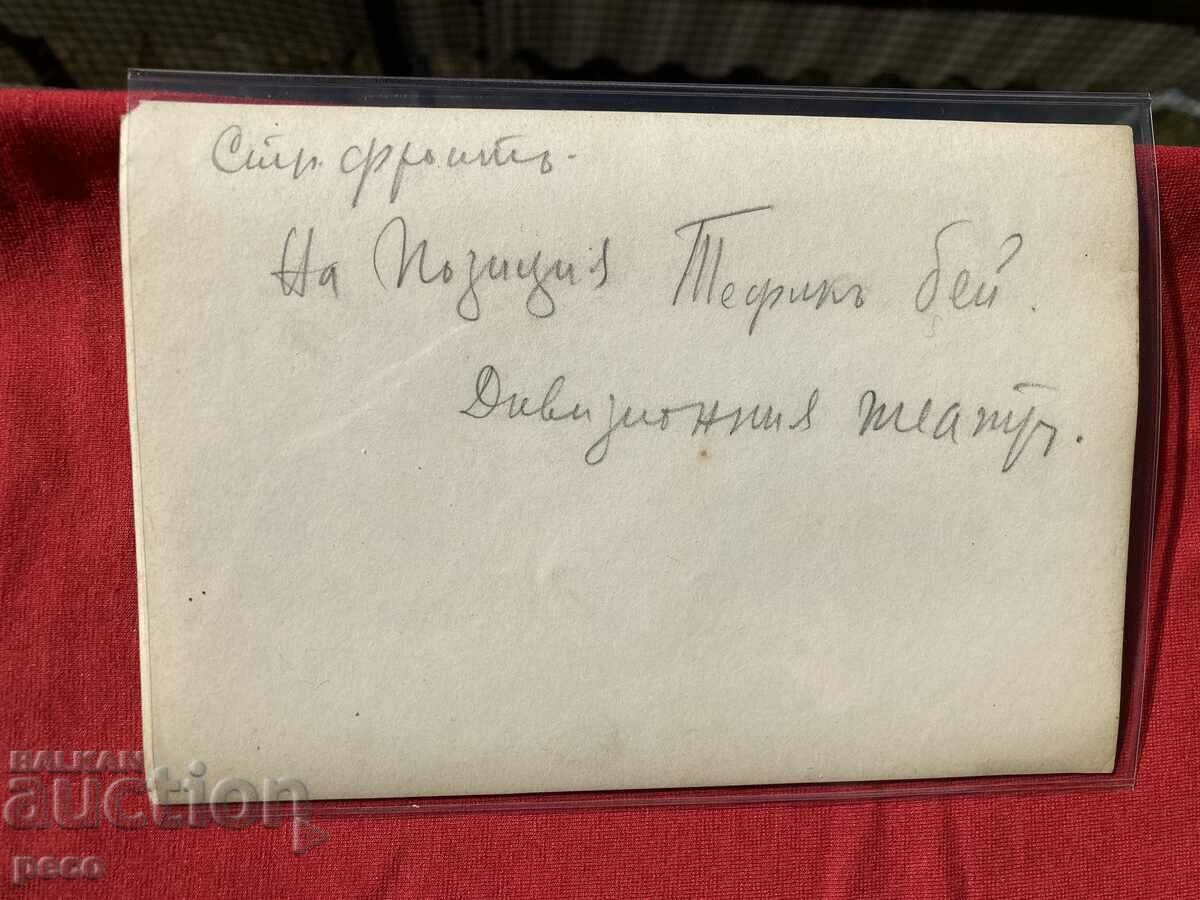 Стр. фронтъ.
На Позиция Тефикъ бей.
Дивизионния театръ.
BALKAN
auction
peco